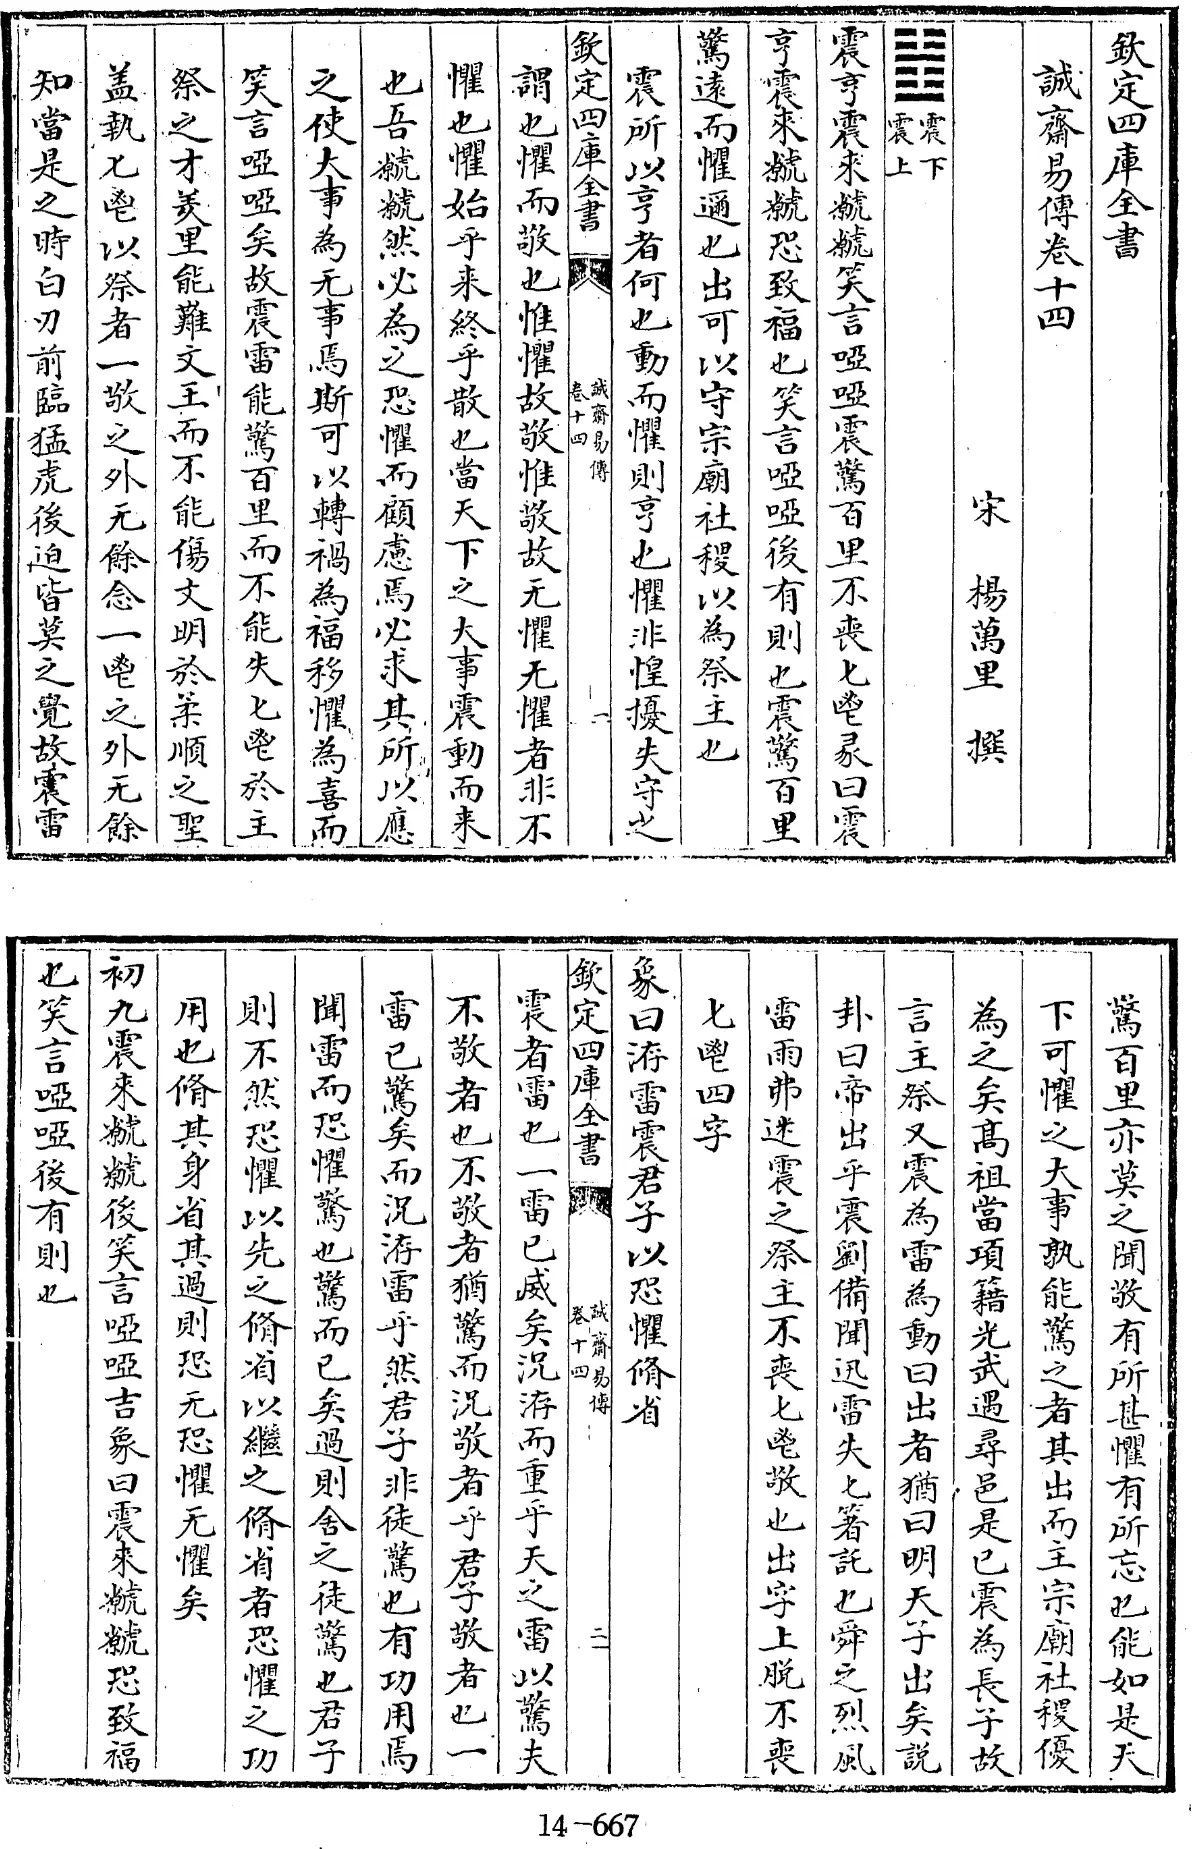 欽定四庫全書
誠齋易傳卷十四
宋 楊萬里 撰
震下
震上
震亨震來虩虩笑言啞啞震驚百里不喪匕鬯彖曰震
亨震來虩虩恐致福也笑言啞啞後有則也震驚百里
驚遠而懼邇也出可以守宗廟社稷以為祭主也
震所以亨者何也動而懼則亨也懼非惶擾失守之
欽定四庫全書
誠齋易傳
卷十四
一
謂也懼而敬也惟懼故敬惟敬故无懼无懼者非不
懼也懼始乎来終乎散也當天下之大事震動而来
也吾虩虩然必為之恐懼而顧慮焉必求其所以應
之使大事為无事焉斯可以轉禍為福移懼為喜而
笑言啞啞矣故震雷能驚百里而不能失匕鬯於主
祭之才羑里能難文王而不能傷文明於柔順之聖
盖執匕鬯以祭者一敬之外无餘念一鬯之外无餘
知當是之時白刃前臨猛虎後迫皆莫之覺故震雷
驚百里亦莫之聞敬有所甚懼有所忘也能如是天
下可懼之大事孰能驚之者其出而主宗廟社稷優
為之矣髙祖當項籍光武遇尋邑是已震為長子故
言主祭又震為雷為動曰出者猶曰明天子出矣説
卦曰帝出乎震劉備聞迅雷失匕箸託也舜之烈風
雷雨弗迷震之祭主不喪匕鬯敬也出字上脱不喪
匕鬯四字
象曰洊雷震君子以恐懼脩省
欽定四庫全書
誠齋易傳
卷十四
二
震者雷也一雷已威矣况洊而重乎天之雷以驚夫
不敬者也不敬者猶驚而况敬者乎君子敬者也一
雷已驚矣而况洊雷乎然君子非徒驚也有功用焉
聞雷而恐懼驚也驚而已矣過則舍之徒驚也君子
則不然恐懼以先之脩省以繼之脩省者恐懼之功
用也脩其身省其過則恐无恐懼无懼矣
初九震來虩虩後笑言啞啞吉象曰震來虩虩恐致福
也笑言啞啞後有則也
14-667